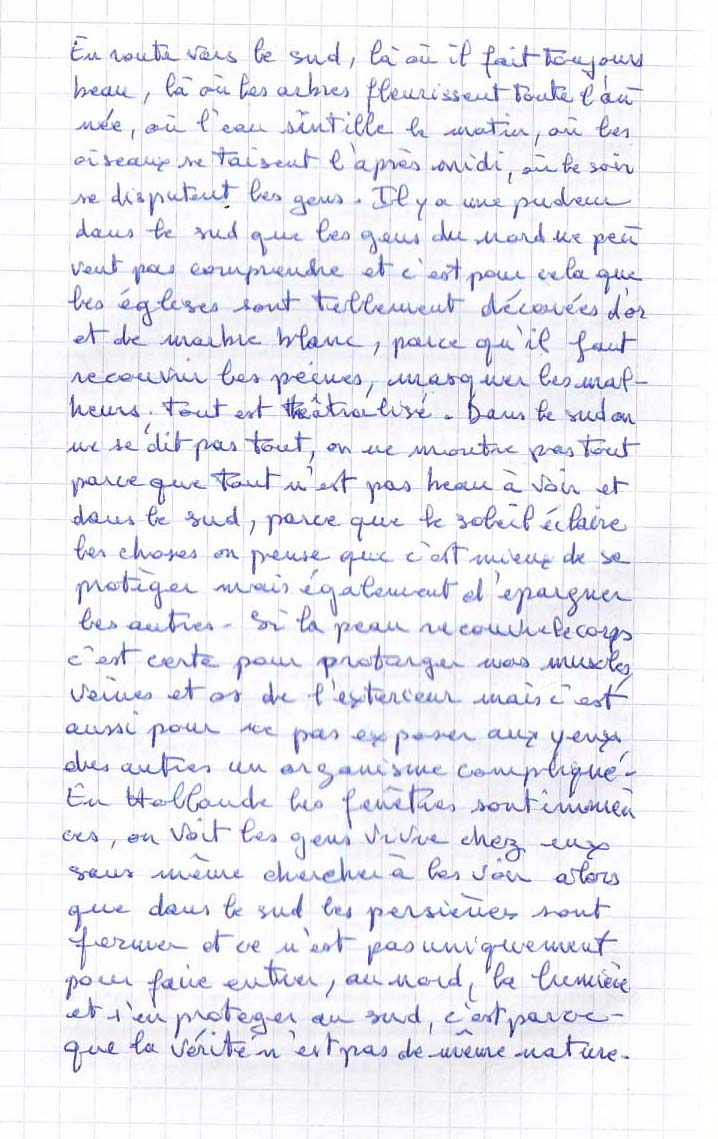 En route vers le sud, là où il fait toujours
beau, là où les arbres fleurissent toute l'an
née, où l'eau sintille le matin, où les
oiseaux se taisent l'après midi, où le soir
se disputent les gens. Il y a une pudeur
dans le sud que les gens du nord ne peu
vent pas comprendre et c'est pour cela que
les églises sont tellement décorées d'or
et de marbre blanc, parce qu'il faut
recouvrir les peines, masquer les mal-
heurs, tout est théâtralisé. Dans le sud on
ne se dit pas tout, on ne montre pas tout
parce que tout n'est pas beau à voir et
dans le sud, parce que le soleil éclaire
les choses on pense que c'est mieux de se
protéger mais également d'épargner
les autres. Si la peau recouvre le corps
c'est certe pour protéger nos muscles,
veines et os de l'exterieur mais c'est
aussi pour ne pas exposer aux yeux
des autres un organisme compliqué.
En Hollande les fenêtres sont immen
ces, on voit les gens vivre chez eux
sans même chercher à les voir alors
que dans le sud les persiènes sont
fermer et ce n'est pas uniquement
pour faire entrer, au nord, la lumière
et s'en protéger au sud, c'est parce-
que la vérité n'est pas de même nature.